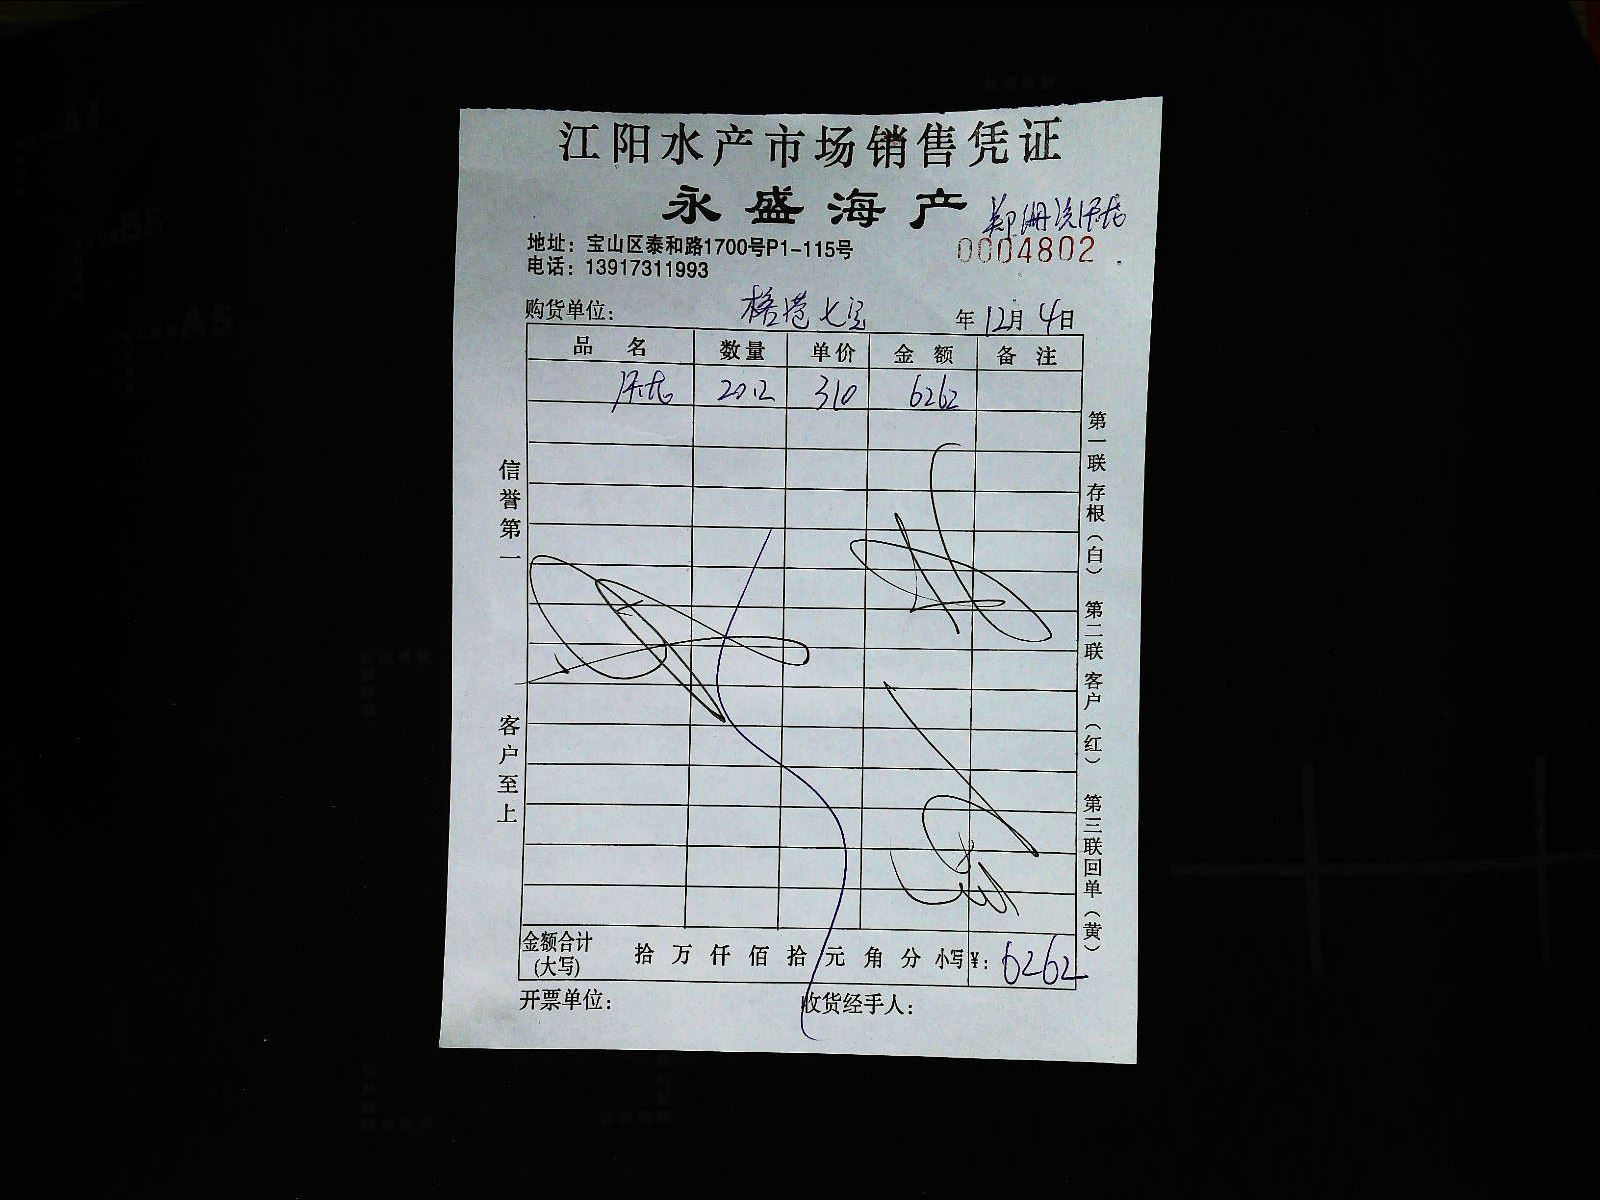 江阳水产市场销售凭证
永盛海产
地址：宝山区泰和路1700号P1-115号
0004802
电话：13917311993
购货单位： 年 12月 4日
品 名 数量 单价 金 额 备 注
310 6262
信誉第一
客户至上
第一联 存根（白） 第二联 客户（红） 第三联 回单（黄）
金额合计(大写) 拾 万 仟 佰 拾 元 角 分 小写¥：6262
开票单位： 收货经手人：